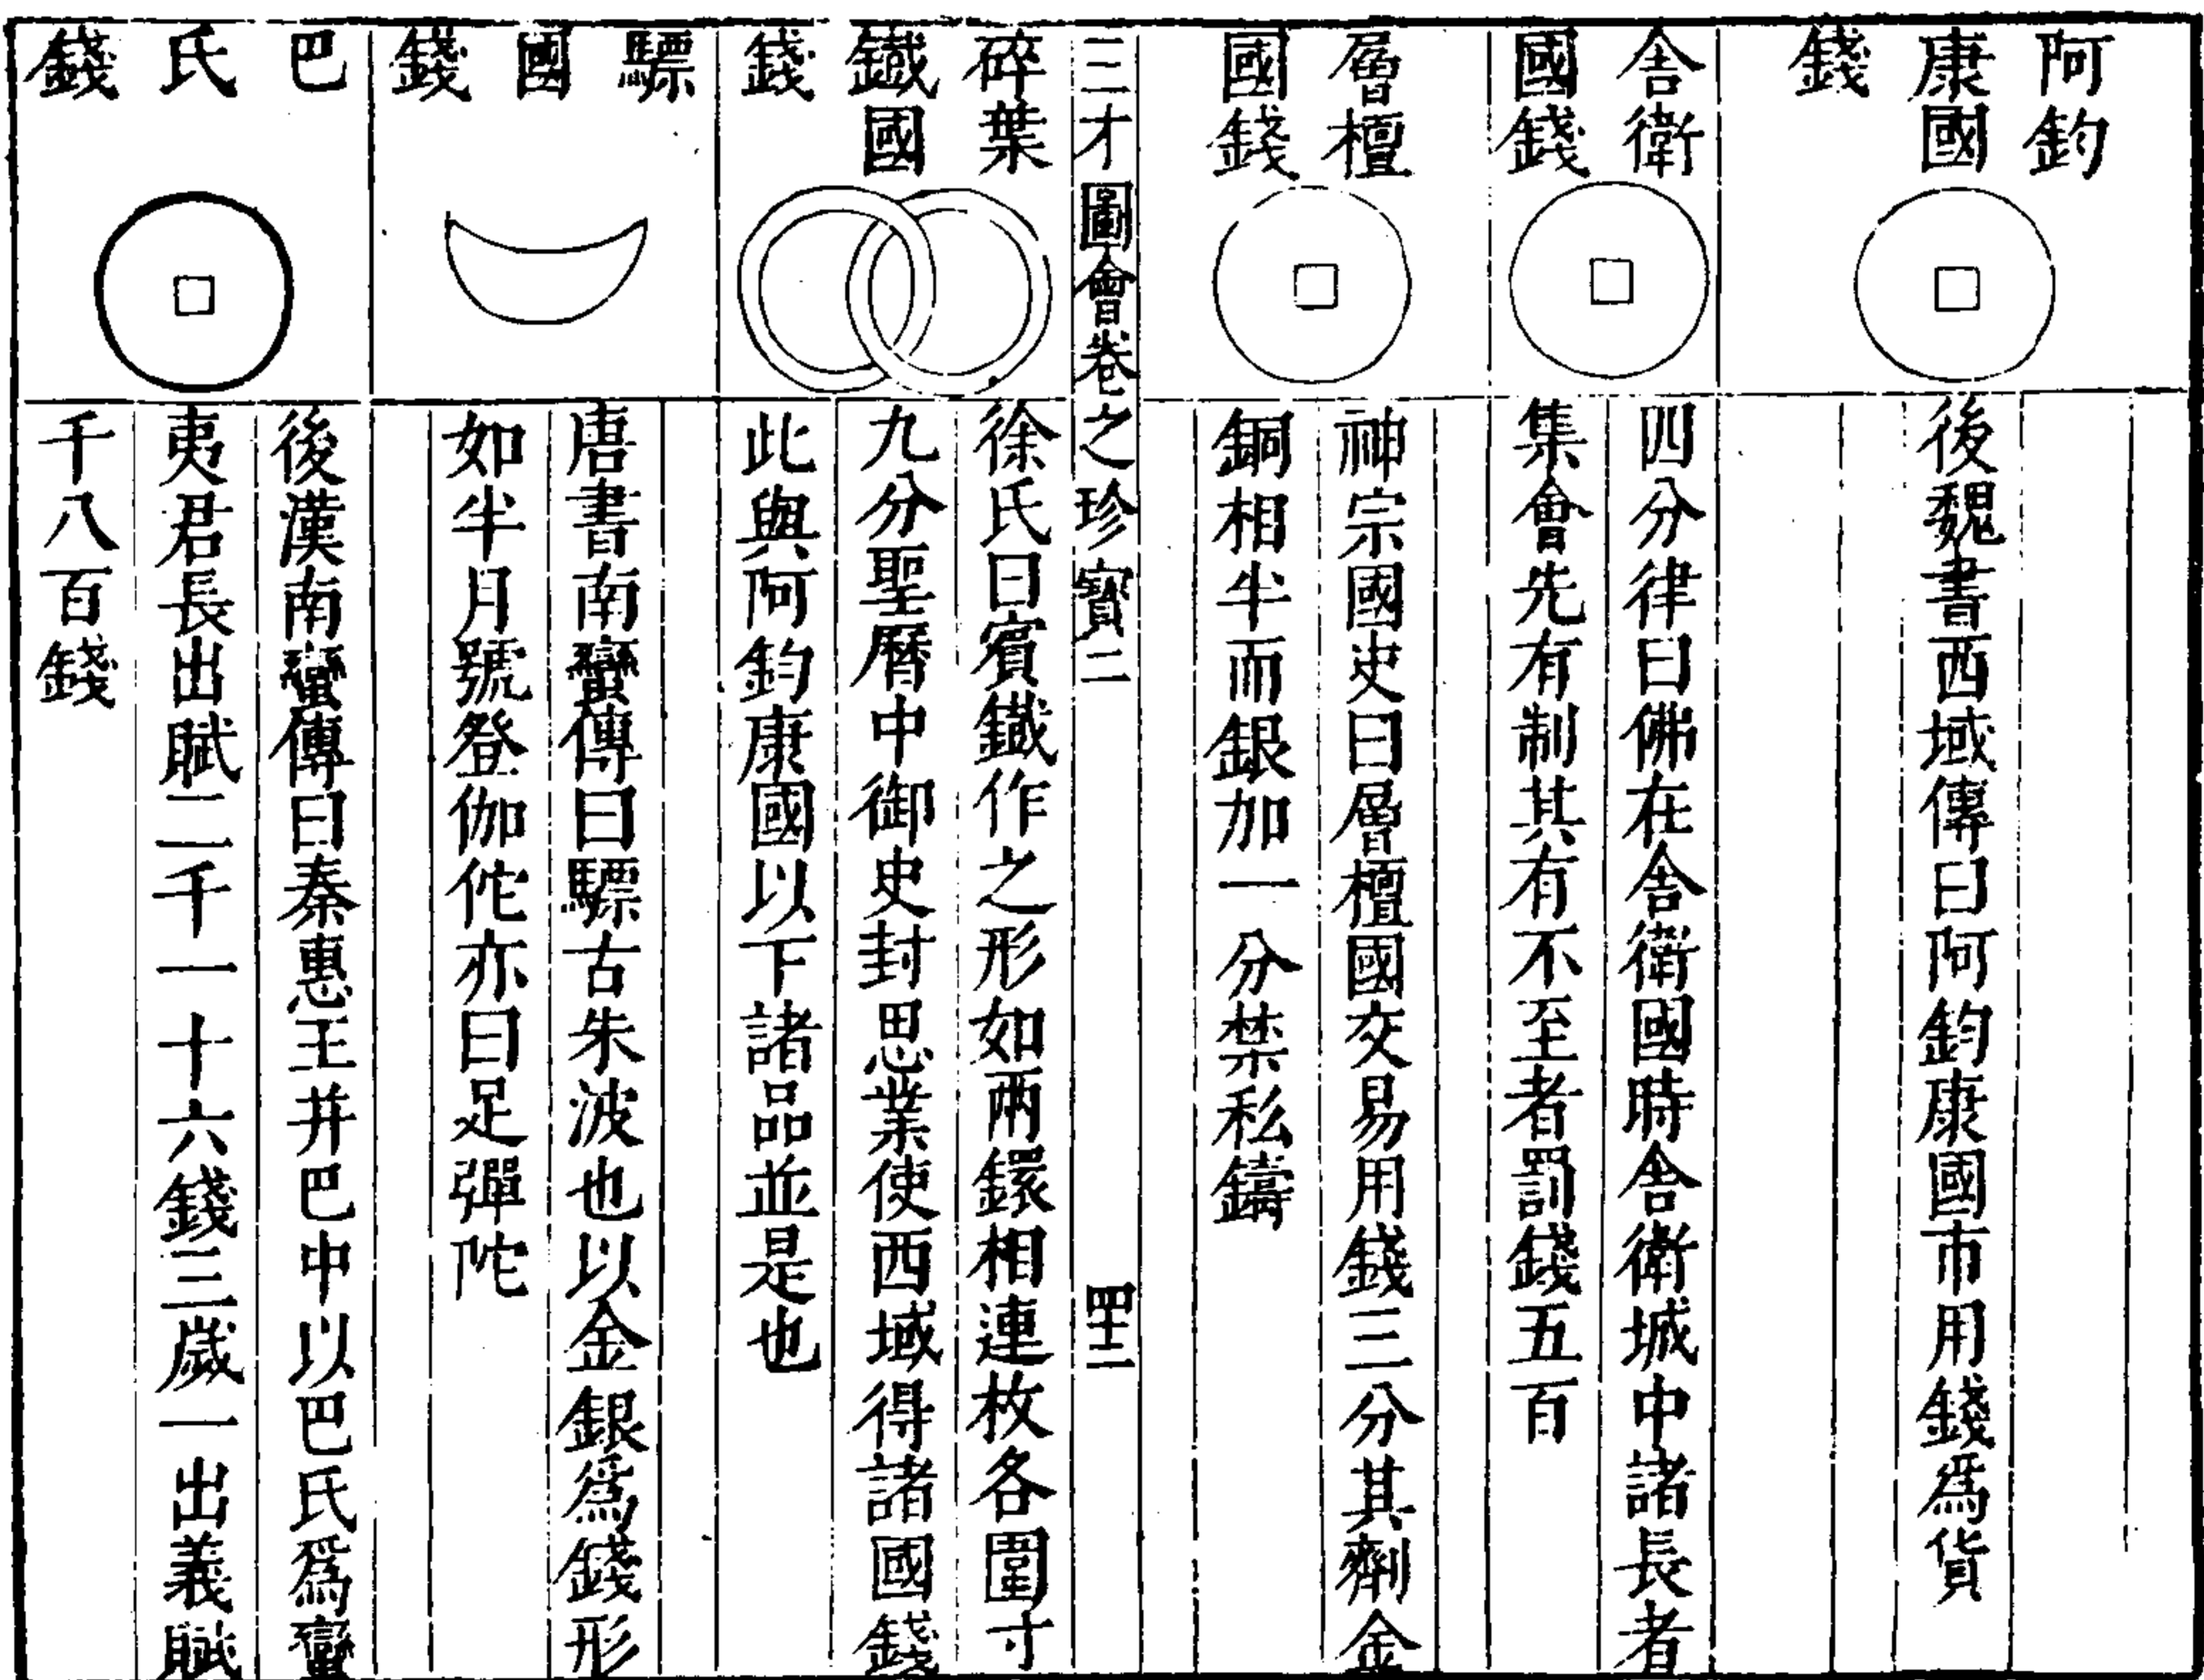 阿鈞
康國
錢
後魏書西域傳曰阿鈞康國市用錢爲貨
舍衛
國錢
四分律曰佛在舍衛國時舍衛城中諸長者
集會先有制其有不至者罰錢五百
層檀
國錢
神宗國史曰層檀國交易用錢三分其劑金
銅相半而銀加一分禁私鑄
三才圖會卷之珍寶二
四十二
碎葉
鐵國
錢
徐氏曰賓鐵作之形如兩鐶相連枚各圍寸
九分聖曆中御史封思業使西域得諸國錢
此與阿鈞康國以下諸品並是也
驃
國
錢
唐書南蠻傳曰驃古朱波也以金銀爲錢形
如半月號登伽佗亦曰足彈陀
巴
氏
錢
後漢南蠻傳曰秦惠王并巴中以巴氏爲蠻
夷君長出賦二千一十六錢三歲一出義賦
千八百錢